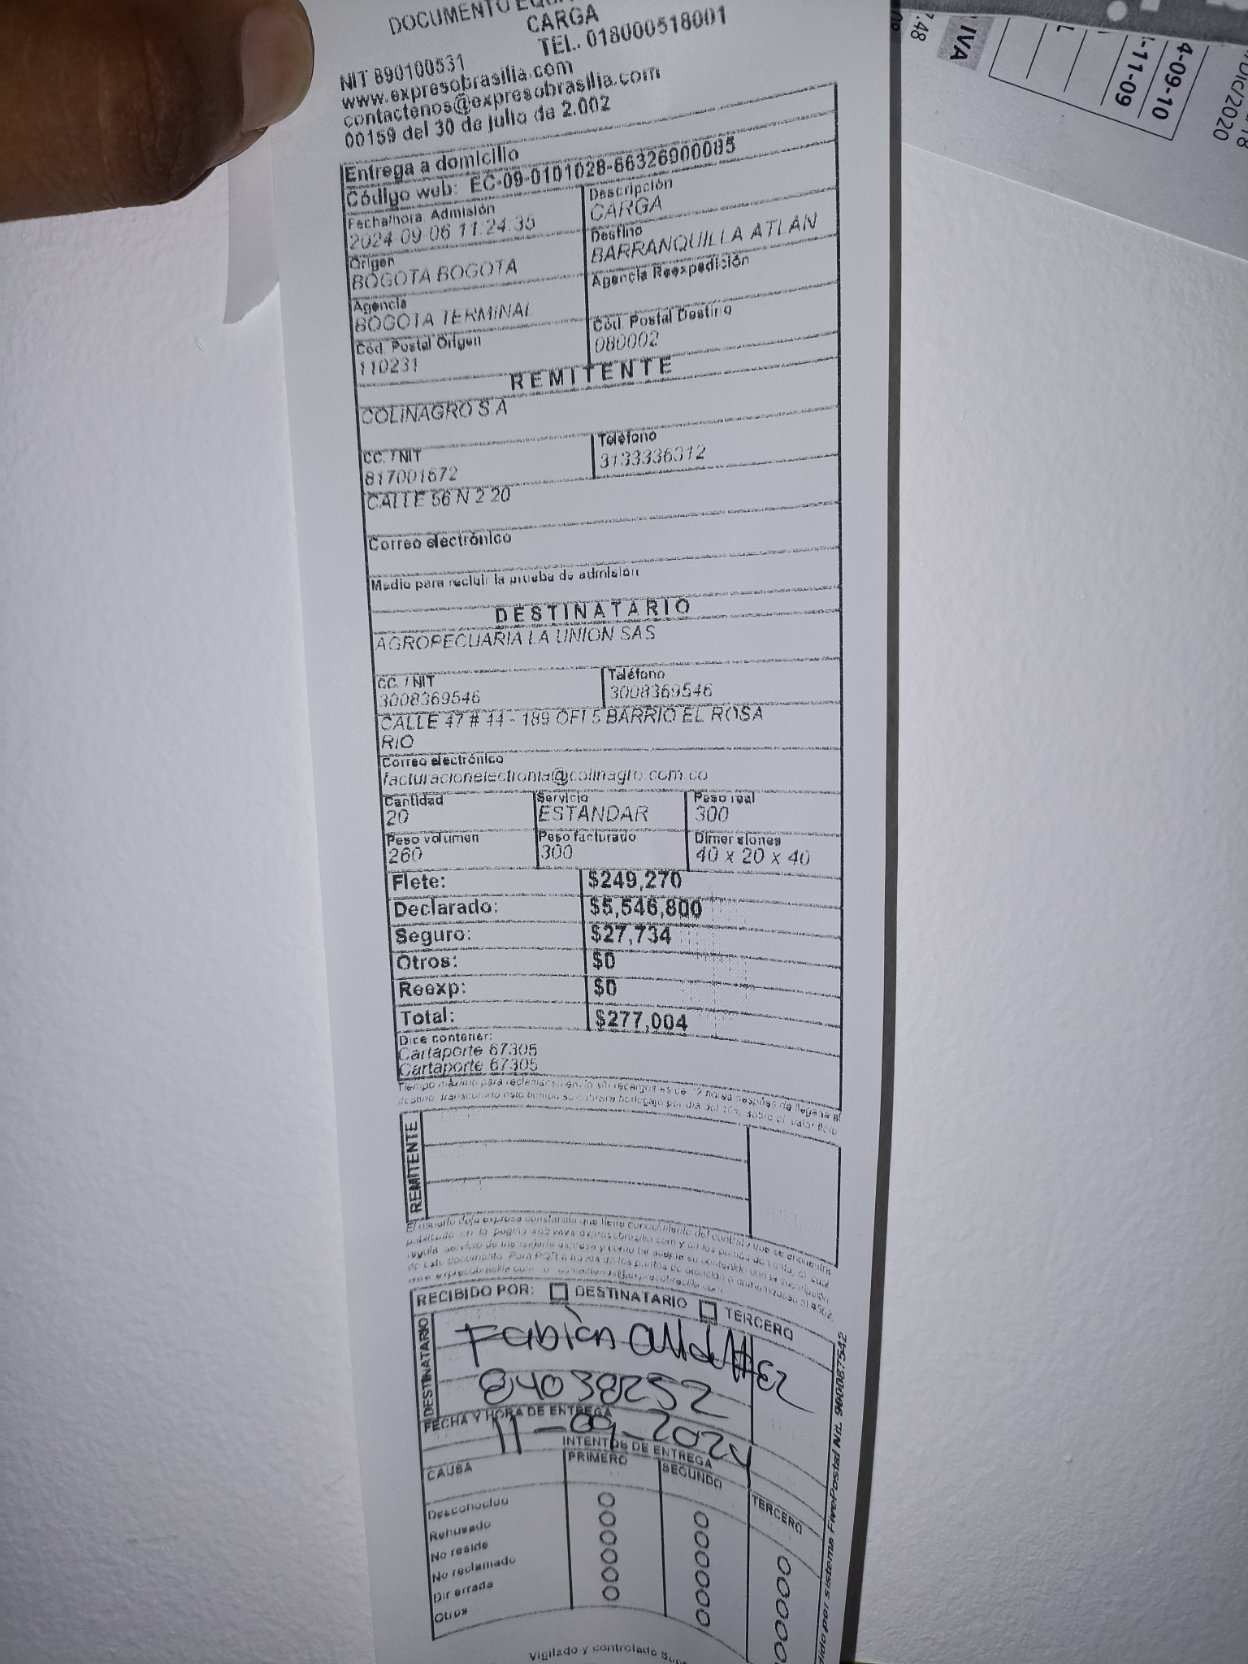 DOCUMENTO
CARGA
TEL. 018000518001
NIT 890100531
www.expresobrasilia.com
contactenos@expresobrasilia.com
00159 del 30 de julio de 2.002
Entrega a domicilio
Código web: EC-09-0101028-66326900085
Fecha/hora Admisión
2024 09 06 11:24:35
Descripción
CARGA
Origen
BOGOTA BOGOTA
Destino
BARRANQUILLA ATLAN
Agencia
BOGOTA TERMINAL
Agencia Reexpedición
Cód. Postal Origen
110231
Cód. Postal Destino
080002
REMITENTE
COLINAGRO S A
CC. / NIT
817001672
Teléfono
3133336312
CALLE 56 N 2 20
Correo electrónico
Medio para recluir la prueba de admisión
DESTINATARIO
AGROPECUARIA LA UNION SAS
CC. / NIT
3008369546
Teléfono
3008369546
CALLE 47 # 44 - 189 OFI 5 BARRIO EL ROSA
RIO
Correo electrónico
facturacionelectronia@colinagro.com.co
Cantidad
20
Servicio
ESTANDAR
Peso real
300
Peso volumen
260
Peso facturado
300
Dimensiones
40 x 20 x 40
Flete: $249,270
Declarado: $5,546,800
Seguro: $27,734
Otros: $0
Reexp: $0
Total: $277,004
Dice contener:
Cartaporte 67305
Cartaporte 67305
REMITENTE
RECIBIDO POR: DESTINATARIO TERCERO
DESTINATARIO
Fabian
84038252
FECHA Y HORA DE ENTREGA
11-09-2024
INTENTOS DE ENTREGA
CAUSA PRIMERO SEGUNDO TERCERO
Desconocido
Rehusado
No reside
No reclamado
Dir errada
Otros
Vigilado y controlado
sistema FivePostal Nit. 900087542
7.48
IVA
4-09-10
-11-09
/Dic/2020